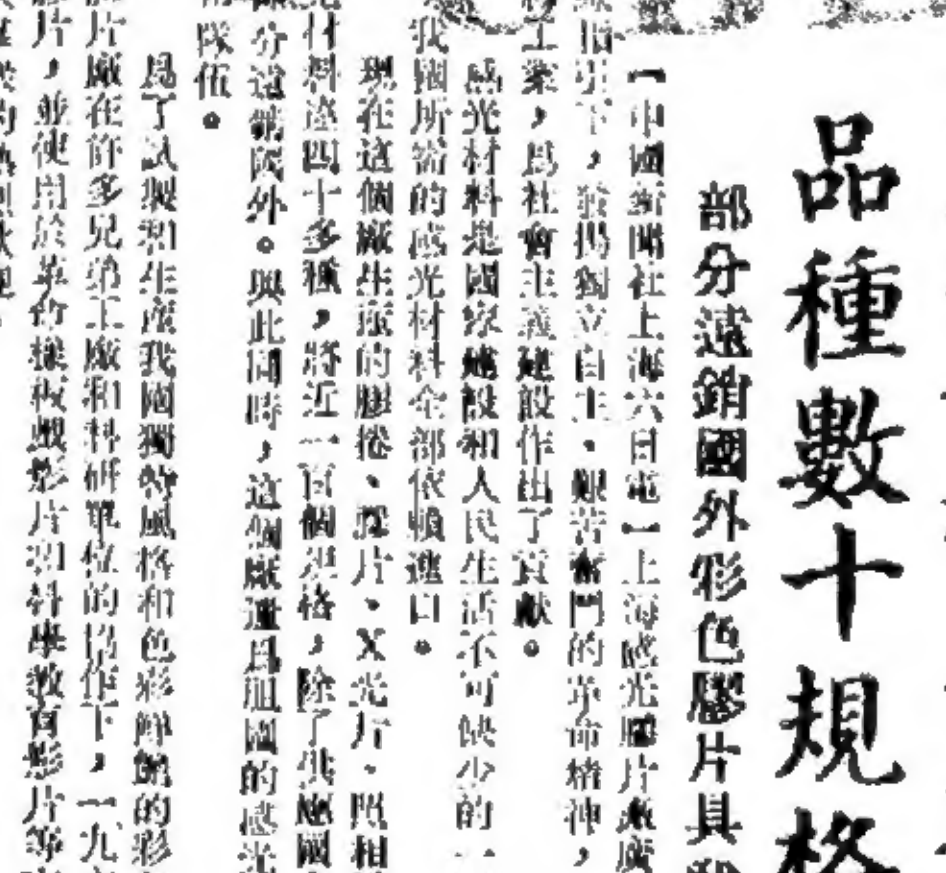 品種數十規格
部分遠銷國外彩色膠片具
【中國新聞社上海六日電】上海感光膠片廠廣
指引下，發揚獨立自主、艱苦奮鬥的革命精神，
工業，爲社會主義建設作出了貢獻。
感光材料是國家建設和人民生活不可缺少的一
我國所需的感光材料全部依賴進口。
現在這個廠生產的膠捲、探片、X光片、照相
材料達四十多種，將近一百個規格，除了供應國
分遠銷國外。與此同時，這個廠還爲祖國的感光
隊伍。
爲了試製和生產我國獨特風格和色彩鮮艷的彩
片廠在許多兄弟工廠和科研單位的協作下，一九
片，並使用於革命樣板戲影片和科學教育影片等